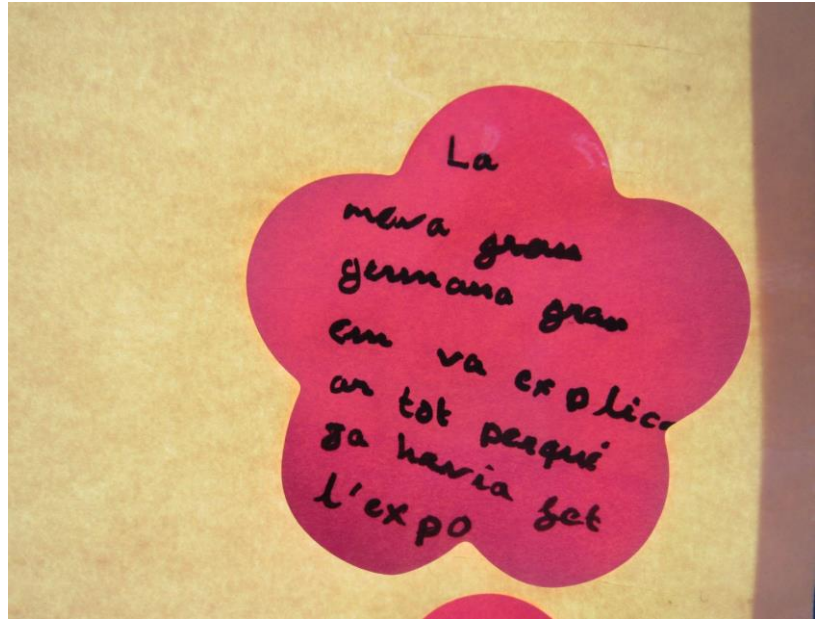 La
meva gran
germana gran
em va explic
ar tot perqué
ja havia fet
l'expo